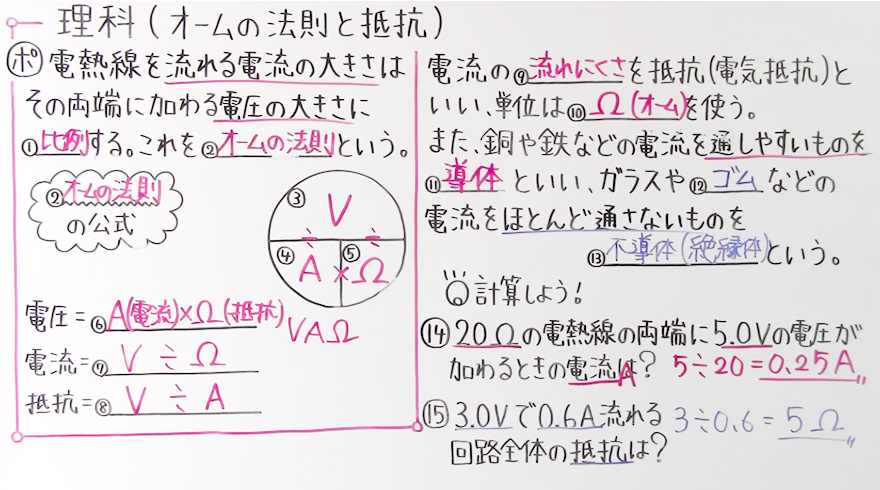 理科(オームの法則と抵抗)
ポ 電熱線を流れる電流の大きさは
その両端に加わる電圧の大きさに
①比例する。これを②オームの法則という。
②オームの法則
の公式
③ V
÷ ÷
④ A × ⑤ Ω
VAΩ
電圧=⑥A(電流)×Ω(抵抗)
電流=⑦V÷Ω
抵抗=⑧V÷A
電流の⑨流れにくさを抵抗(電気抵抗)と
いい、単位は⑩Ω(オーム)を使う。
また、銅や鉄などの電流を通しやすいものを
⑪導体といい、ガラスや⑫ゴムなどの
電流をほとんど通さないものを
⑬不導体(絶縁体)という。
計算しよう!
⑭20Ωの電熱線の両端に5.0Vの電圧が
加わるときの電流は? A 5÷20=0.25A
⑮3.0Vで0.6A流れる 3÷0.6=5Ω
回路全体の抵抗は?